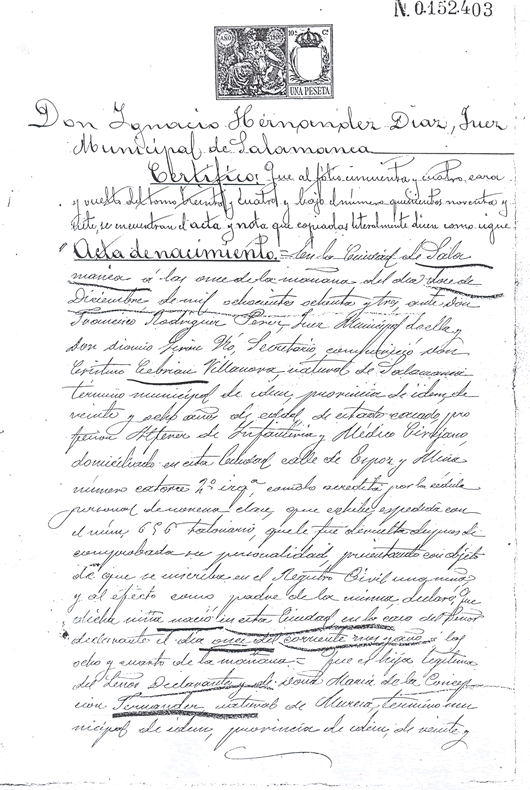 N. 0.152.403
AÑO 10ª Cª
UNA PESETA
Don Ignacio Hernandez Diaz, Juez
Municipal de Salamanca
Certifico: Que al folio cincuenta y cuatro, cara
y vuelta del tomo treinta y cuatro y bajo el número quinientos noventa y
siete, se encuentran el acta y nota que copiadas literalmente dicen como sigue
"Acta de nacimiento. = En la Ciudad de Sala
manca á las once de la mañana del dia doce de
Diciembre de mil ochocientos ochenta y tres, ante Don
Francisco Rodriguez Perez, Juez Municipal de ella y
Don Secretario, compareció Don
Cristino Cebrian Villanova, natural de Salamanca
termino municipal de idem, provincia de idem, de
veinte y ocho años de edad, de estado casado, pro
fesion Alferez de Infanteria y Médico Cirujano,
domiciliado en esta Ciudad calle de Espoz y Mina
número catorce 2º izqª, como lo acredita por la cédula
personal de novena clase, que exhibe, expedida con
el núm. 656 talonario, que le fue devuelta despues de
comprobada su personalidad, presentando con objeto
de que se inscriba en el Registro Civil una niña
y al efecto como padre de la misma, declaró, Que
dicha niña nació en esta Ciudad en la casa del Señor
declarante el dia once del corriente mes y año á las
ocho y cuarto de la mañana. = Que es hija legitima
del Señor Declarante y de Doña Maria de la Concep
cion Fernandez, natural de Murcia, termino mu
nicipal de idem, provincia de idem, de veinte y